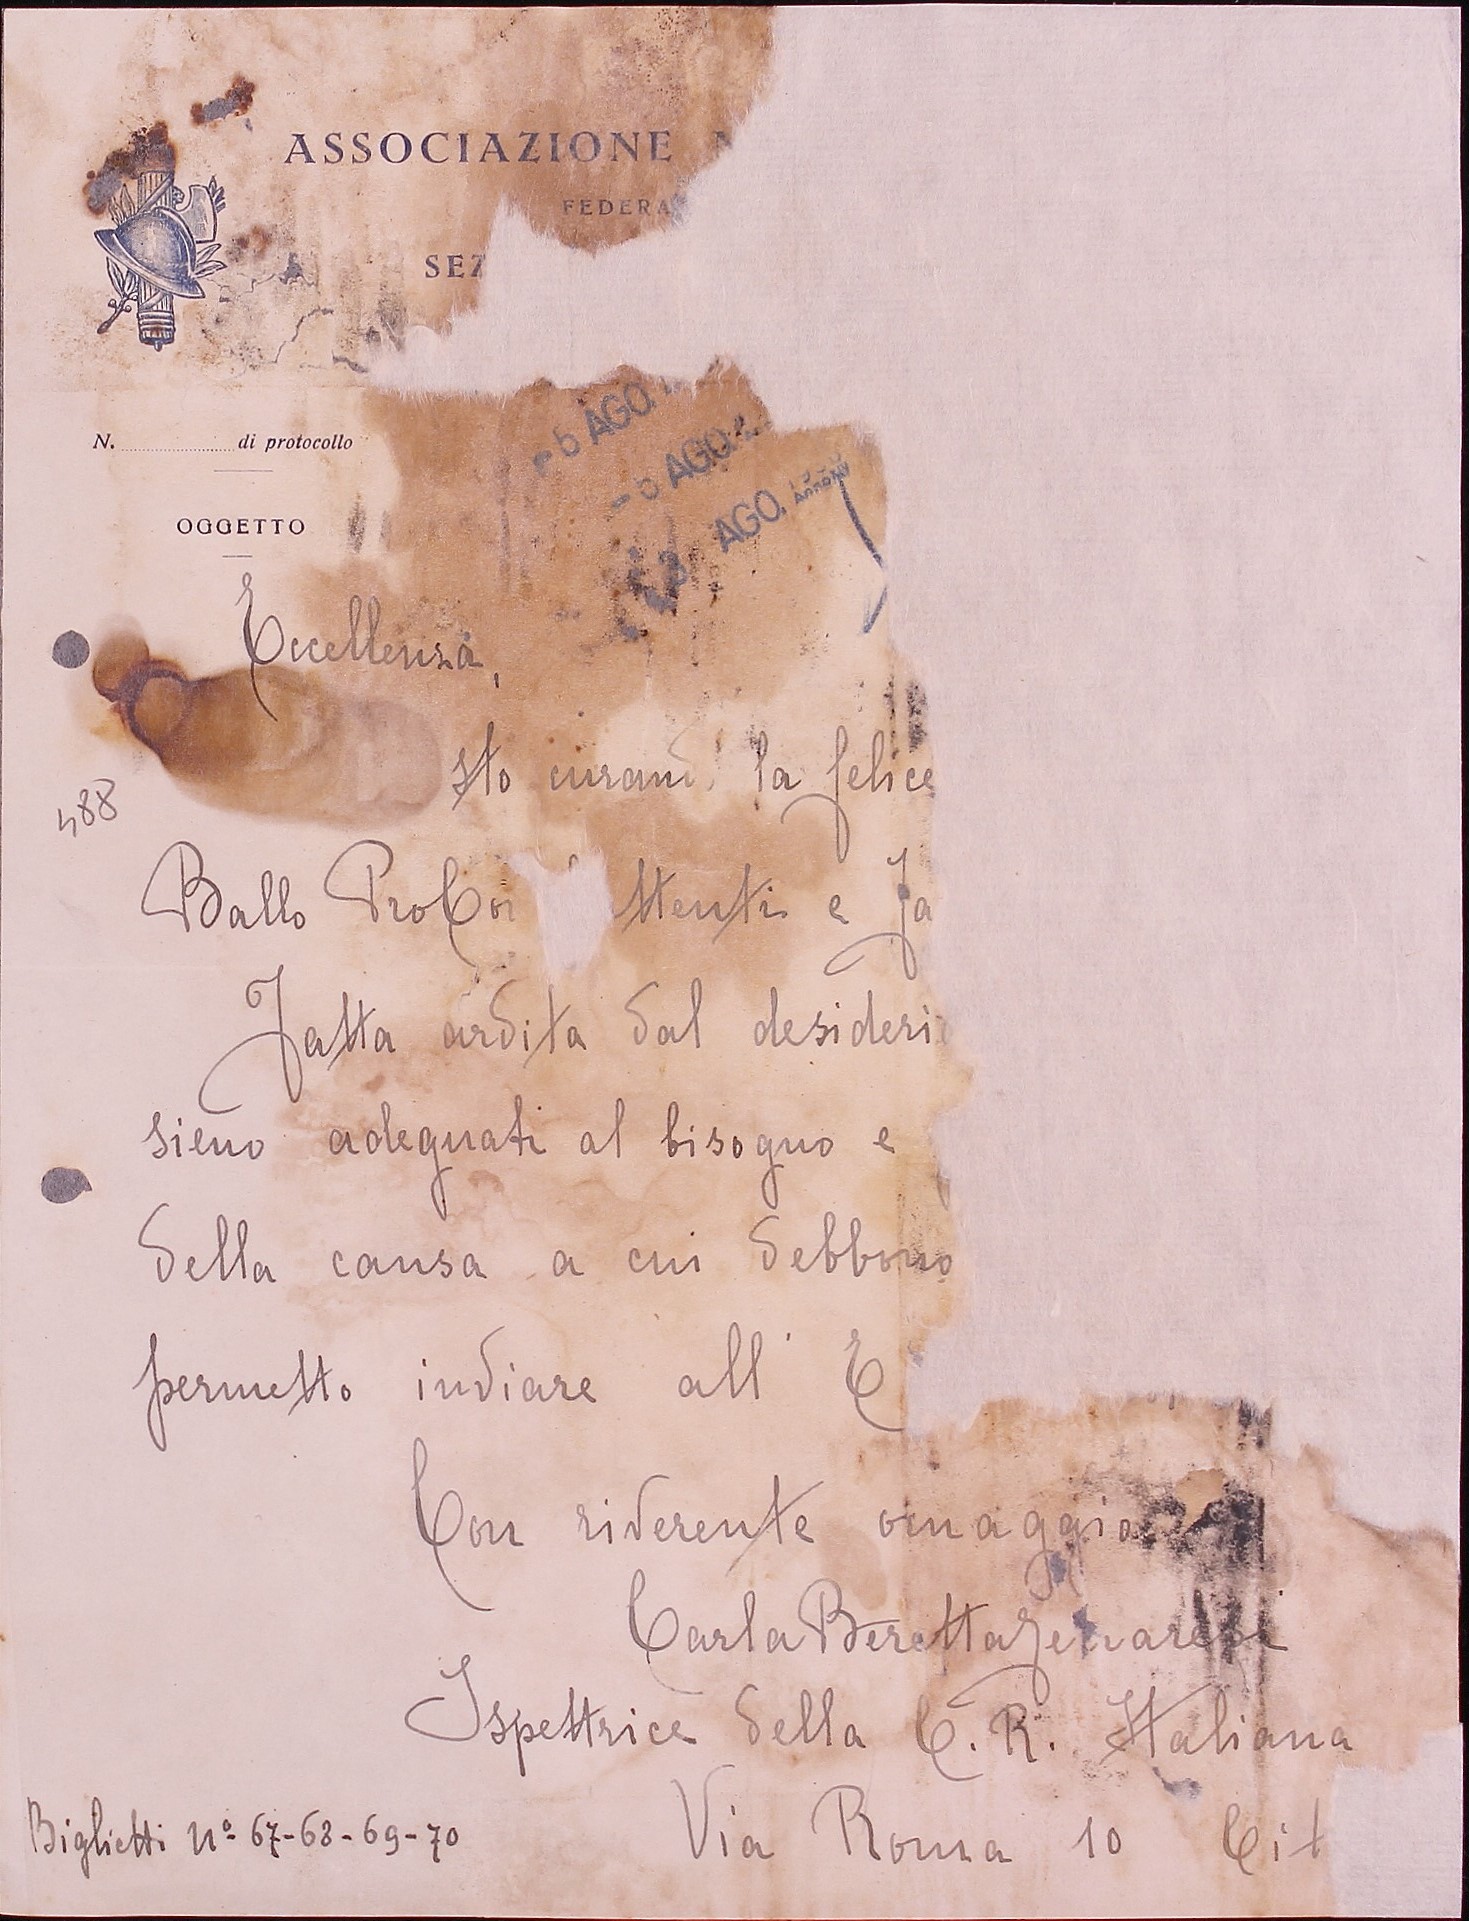 ASSOCIAZIONE N
FEDERA
SEZ
N. di protocollo
- 5 AGO.
- 5 AGO.
AGO.
OGGETTO
Eccellenza,
sto curand la felice
488
Ballo Pro Com ttenti e Fa
Fatta ardita dal desideri
sieno adeguati al bisogno e
della causa a cui debbono
permetto inviare all' E
Con riverente omaggio
Carla Beretta
Ispettrice della C. R. Italiana
Via Roma 10 Cit
Biglietti Nº 67-68-69-70